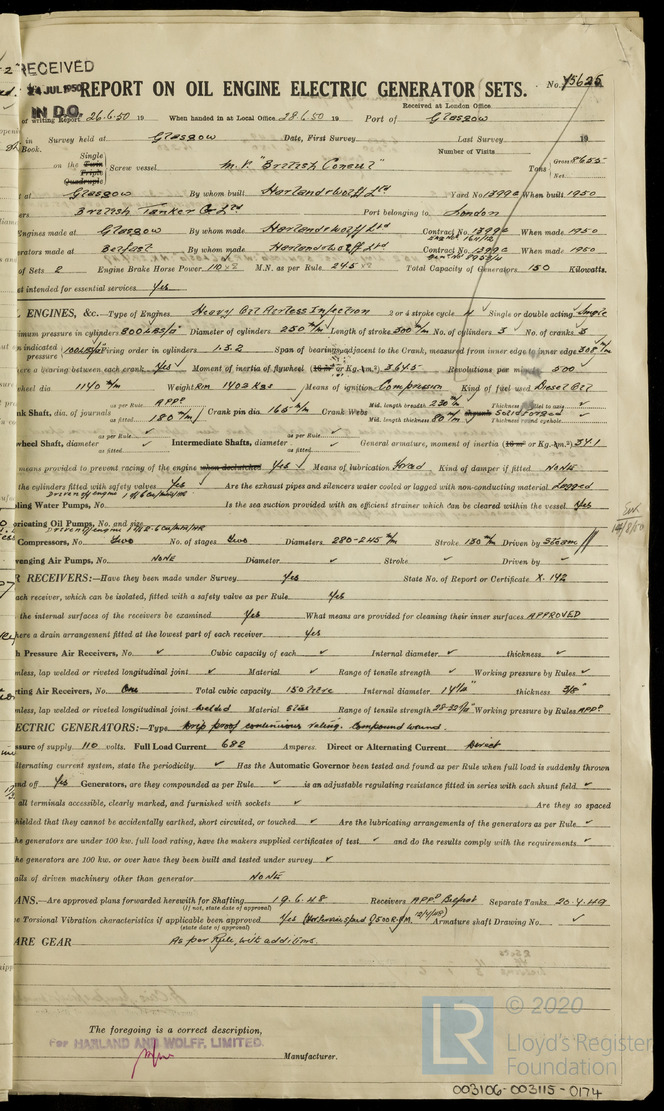 RECEIVED
24 JUL 1950
IN D.O.
REPORT ON OIL ENGINE ELECTRIC GENERATOR SETS. No. 75625
Received at London Office
of writing Report 26.6.50 19 When handed in at Local Office 28.6.50 19 Port of Glasgow
in Survey held at Glasgow Date, First Survey Last Survey 19
Book. Number of Visits
on the Single Twin Triple Quadruple Screw vessel M.V. "British Consul" Tons Gross 8655 Net
at Glasgow By whom built Harland & Wolff Ltd Yard No. 1399G When built 1950
British Tanker Co Ltd Port belonging to London
Engines made at Glasgow By whom made Harland & Wolff Ltd Contract No. 1399G When made 1950
erators made at Belfast By whom made Harland & Wolff Ltd Contract No. 1399G When made 1950
of Sets 2 Engine Brake Horse Power 110 M.N. as per Rule 24.5 Total Capacity of Generators 150 Kilowatts.
et intended for essential services Yes
L ENGINES, &c.—Type of Engines Heavy Oil Airless Injection 2 or 4 stroke cycle 4 Single or double acting Single
imum pressure in cylinders 800 LBS/□" Diameter of cylinders 250 m/m Length of stroke 300 m/m No. of cylinders 3 No. of cranks 3
an indicated pressure 100 LBS/□" Firing order in cylinders 1.3.2 Span of bearings adjacent to the Crank, measured from inner edge to inner edge 308 m/m
here a bearing between each crank Yes Moment of inertia of flywheel or Kg. 364.5 Revolutions per minute 500
wheel dia. 1140 m/m Weight Rim 1402 Kgs Means of ignition Compression Kind of fuel used Diesel Oil
nk Shaft, dia. of journals as per Rule APPD as fitted 180 m/m Crank pin dia. 165 m/m Crank Webs Mid. length breadth 230 m/m Mid. length thickness 80 m/m Solid forged
wheel Shaft, diameter as per Rule ✓ as fitted ✓ Intermediate Shafts, diameter as per Rule ✓ as fitted ✓ General armature, moment of inertia 34.1
means provided to prevent racing of the engine when declutched Yes ✓ Means of lubrication Forced Kind of damper if fitted NONE
the cylinders fitted with safety valves Yes Are the exhaust pipes and silencers water cooled or lagged with non-conducting material Lagged
ling Water Pumps, No. Is the sea suction provided with an efficient strainer which can be cleared within the vessel Yes
bricating Oil Pumps, No. and size
Compressors, No. Two No. of stages Two Diameters 280-245 m/m Stroke 150 m/m Driven by Steam
venging Air Pumps, No. NONE Diameter ✓ Stroke ✓ Driven by ✓
R RECEIVERS:—Have they been made under Survey Yes State No. of Report or Certificate X. 142
ach receiver, which can be isolated, fitted with a safety valve as per Rule Yes
the internal surfaces of the receivers be examined Yes What means are provided for cleaning their inner surfaces APPROVED
here a drain arrangement fitted at the lowest part of each receiver Yes
h Pressure Air Receivers, No. ✓ Cubic capacity of each ✓ Internal diameter ✓ thickness ✓
mless, lap welded or riveted longitudinal joint ✓ Material ✓ Range of tensile strength ✓ Working pressure by Rules ✓
rting Air Receivers, No. One Total cubic capacity 150 Litre Internal diameter thickness 3/8"
mless, lap welded or riveted longitudinal joint Welded Material Steel Range of tensile strength 28-32 T/□" Working pressure by Rules APPD
ECTRIC GENERATORS:—Type Drip proof continuous rating. Compound wound.
ssure of supply 110 volts. Full Load Current 682 Amperes. Direct or Alternating Current Direct
lternating current system, state the periodicity ✓ Has the Automatic Governor been tested and found as per Rule when full load is suddenly thrown
nd off Yes Generators, are they compounded as per Rule ✓ is an adjustable regulating resistance fitted in series with each shunt field ✓
all terminals accessible, clearly marked, and furnished with sockets ✓ Are they so spaced
hielded that they cannot be accidentally earthed, short circuited, or touched ✓ Are the lubricating arrangements of the generators as per Rule ✓
he generators are under 100 kw. full load rating, have the makers supplied certificates of test ✓ and do the results comply with the requirements ✓
he generators are 100 kw. or over have they been built and tested under survey ✓
ails of driven machinery other than generator NONE
ANS.—Are approved plans forwarded herewith for Shafting 19.6.48 Receivers APPD Belfast Separate Tanks 20.4.49
(If not, state date of approval)
e Torsional Vibration characteristics if applicable been approved Yes (For Service Speed @ 500 R.P.M. 12/4/49) Armature shaft Drawing No. ✓
(state date of approval)
ARE GEAR As per Rule, with additions.
The foregoing is a correct description,
For HARLAND AND WOLFF, LIMITED.
Manufacturer.
LR © 2020
Lloyd's Register
Foundation
003106-003115-0174